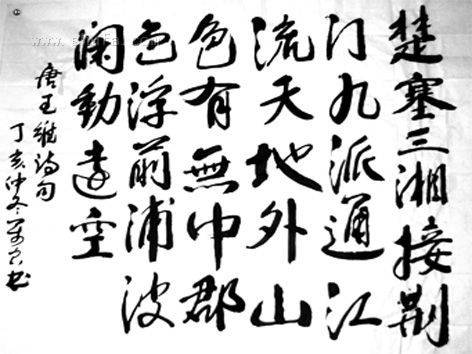 楚塞三湘接荆
门九派通江
流天地外山
色有無中郡
邑浮前浦波
澜動遠空
唐王維诗句
丁亥仲冬书